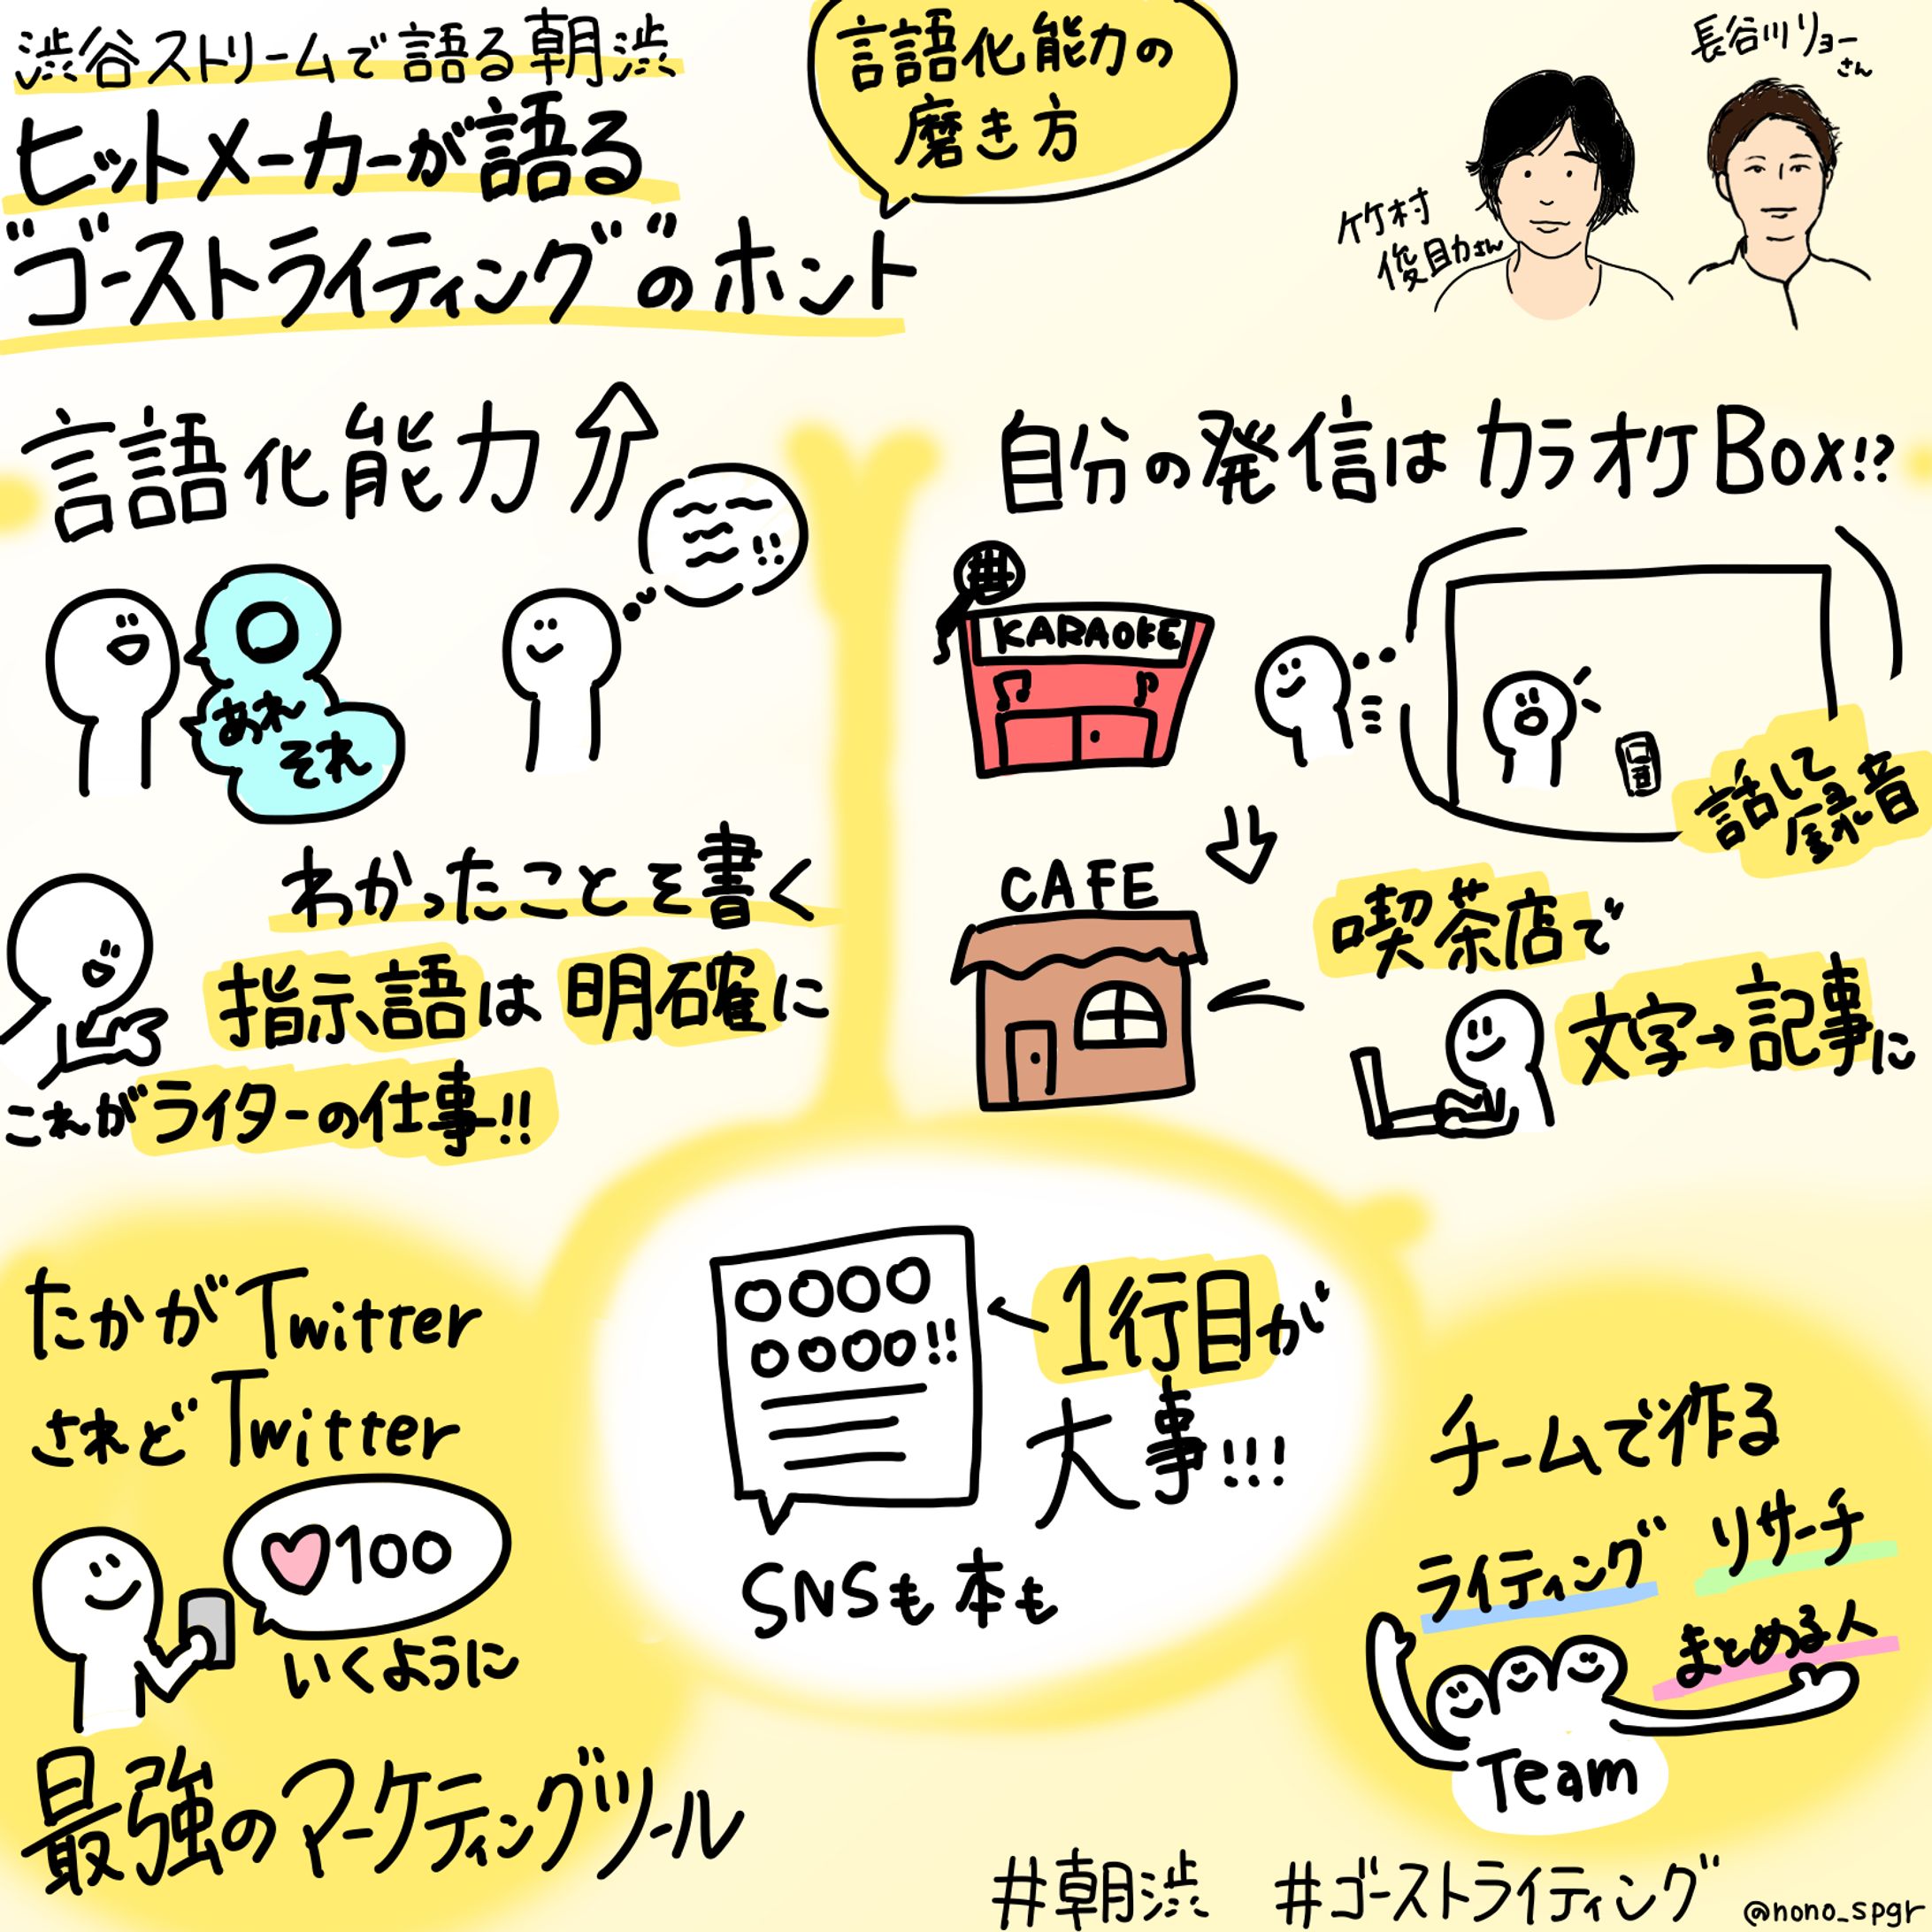 渋谷ストリームで語る朝渋
ヒットメーカーが語る
"ゴーストライティング"のホント
言語化能力の
磨き方
長谷川リョー
さん
竹村
俊助さん
言語化能力
あれ
それ
わかったことを書く
指示語は明確に
これがライターの仕事!!
自分の発信はカラオケBox!?
KARAOKE
話して
録音
CAFE
喫茶店で
文字→記事に
たかがTwitter
されどTwitter
♡100
いくように
最強のマーケティングツール
〇〇〇〇
〇〇〇〇!!
1行目が
大事!!!
SNSも本も
チームで作る
ライティング
リサーチ
まとめる人
Team
#朝渋 #ゴーストライティング
@nono_spgr